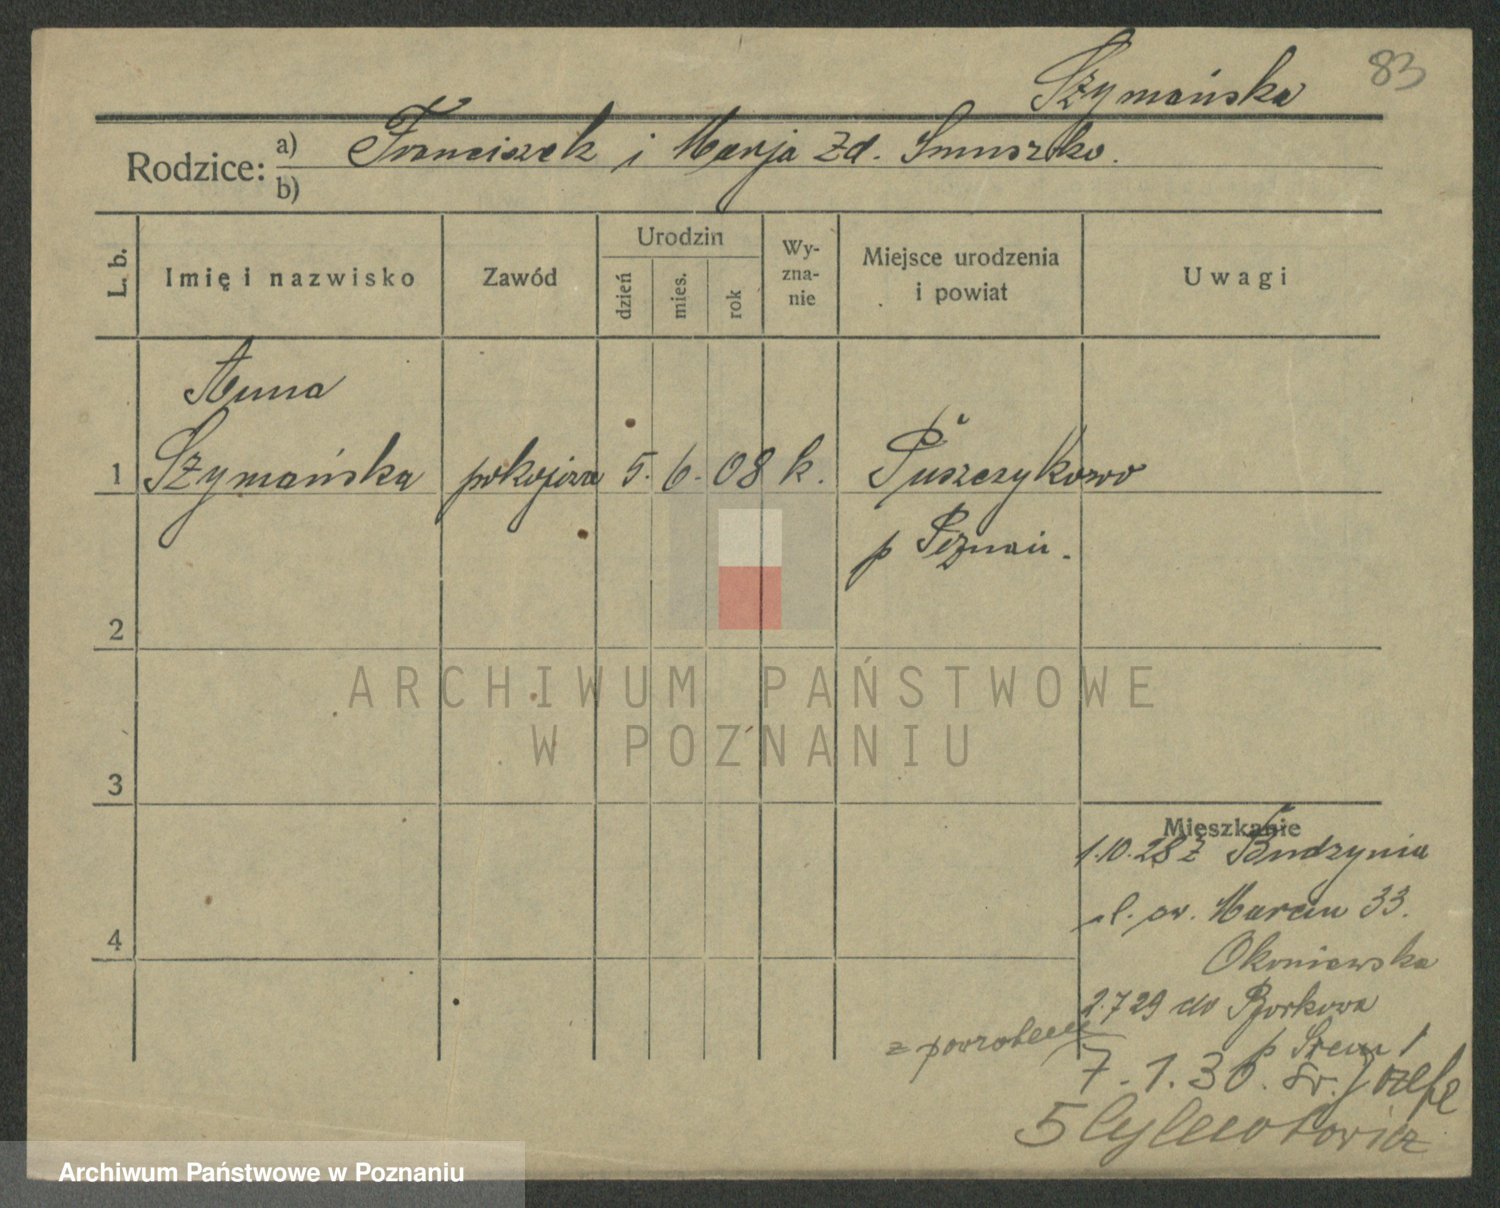 Szymańska 83
Rodzice: a) Franciszek i Marja zd. Smuszko.
b)
L. b.
Imię i nazwisko
Zawód
Urodzin
dzień
mies.
rok
Wy-
zna-
nie
Miejsce urodzenia
i powiat
Uwagi
Anna
1 Szymańska pokojowa 5. 6. 08 k. Puszczykowo
p Poznań.
2
ARCHIWUM PAŃSTWOWE
W POZNANIU
3
Mieszkanie
1.10.28 z Budzynia
ul. św. Marcin 33.
4
Okoniewska
2.7 29 do Borkowa
p Śrem
z powrotem
7.1.30. św. Józefa
5
Archiwum Państwowe w Poznaniu